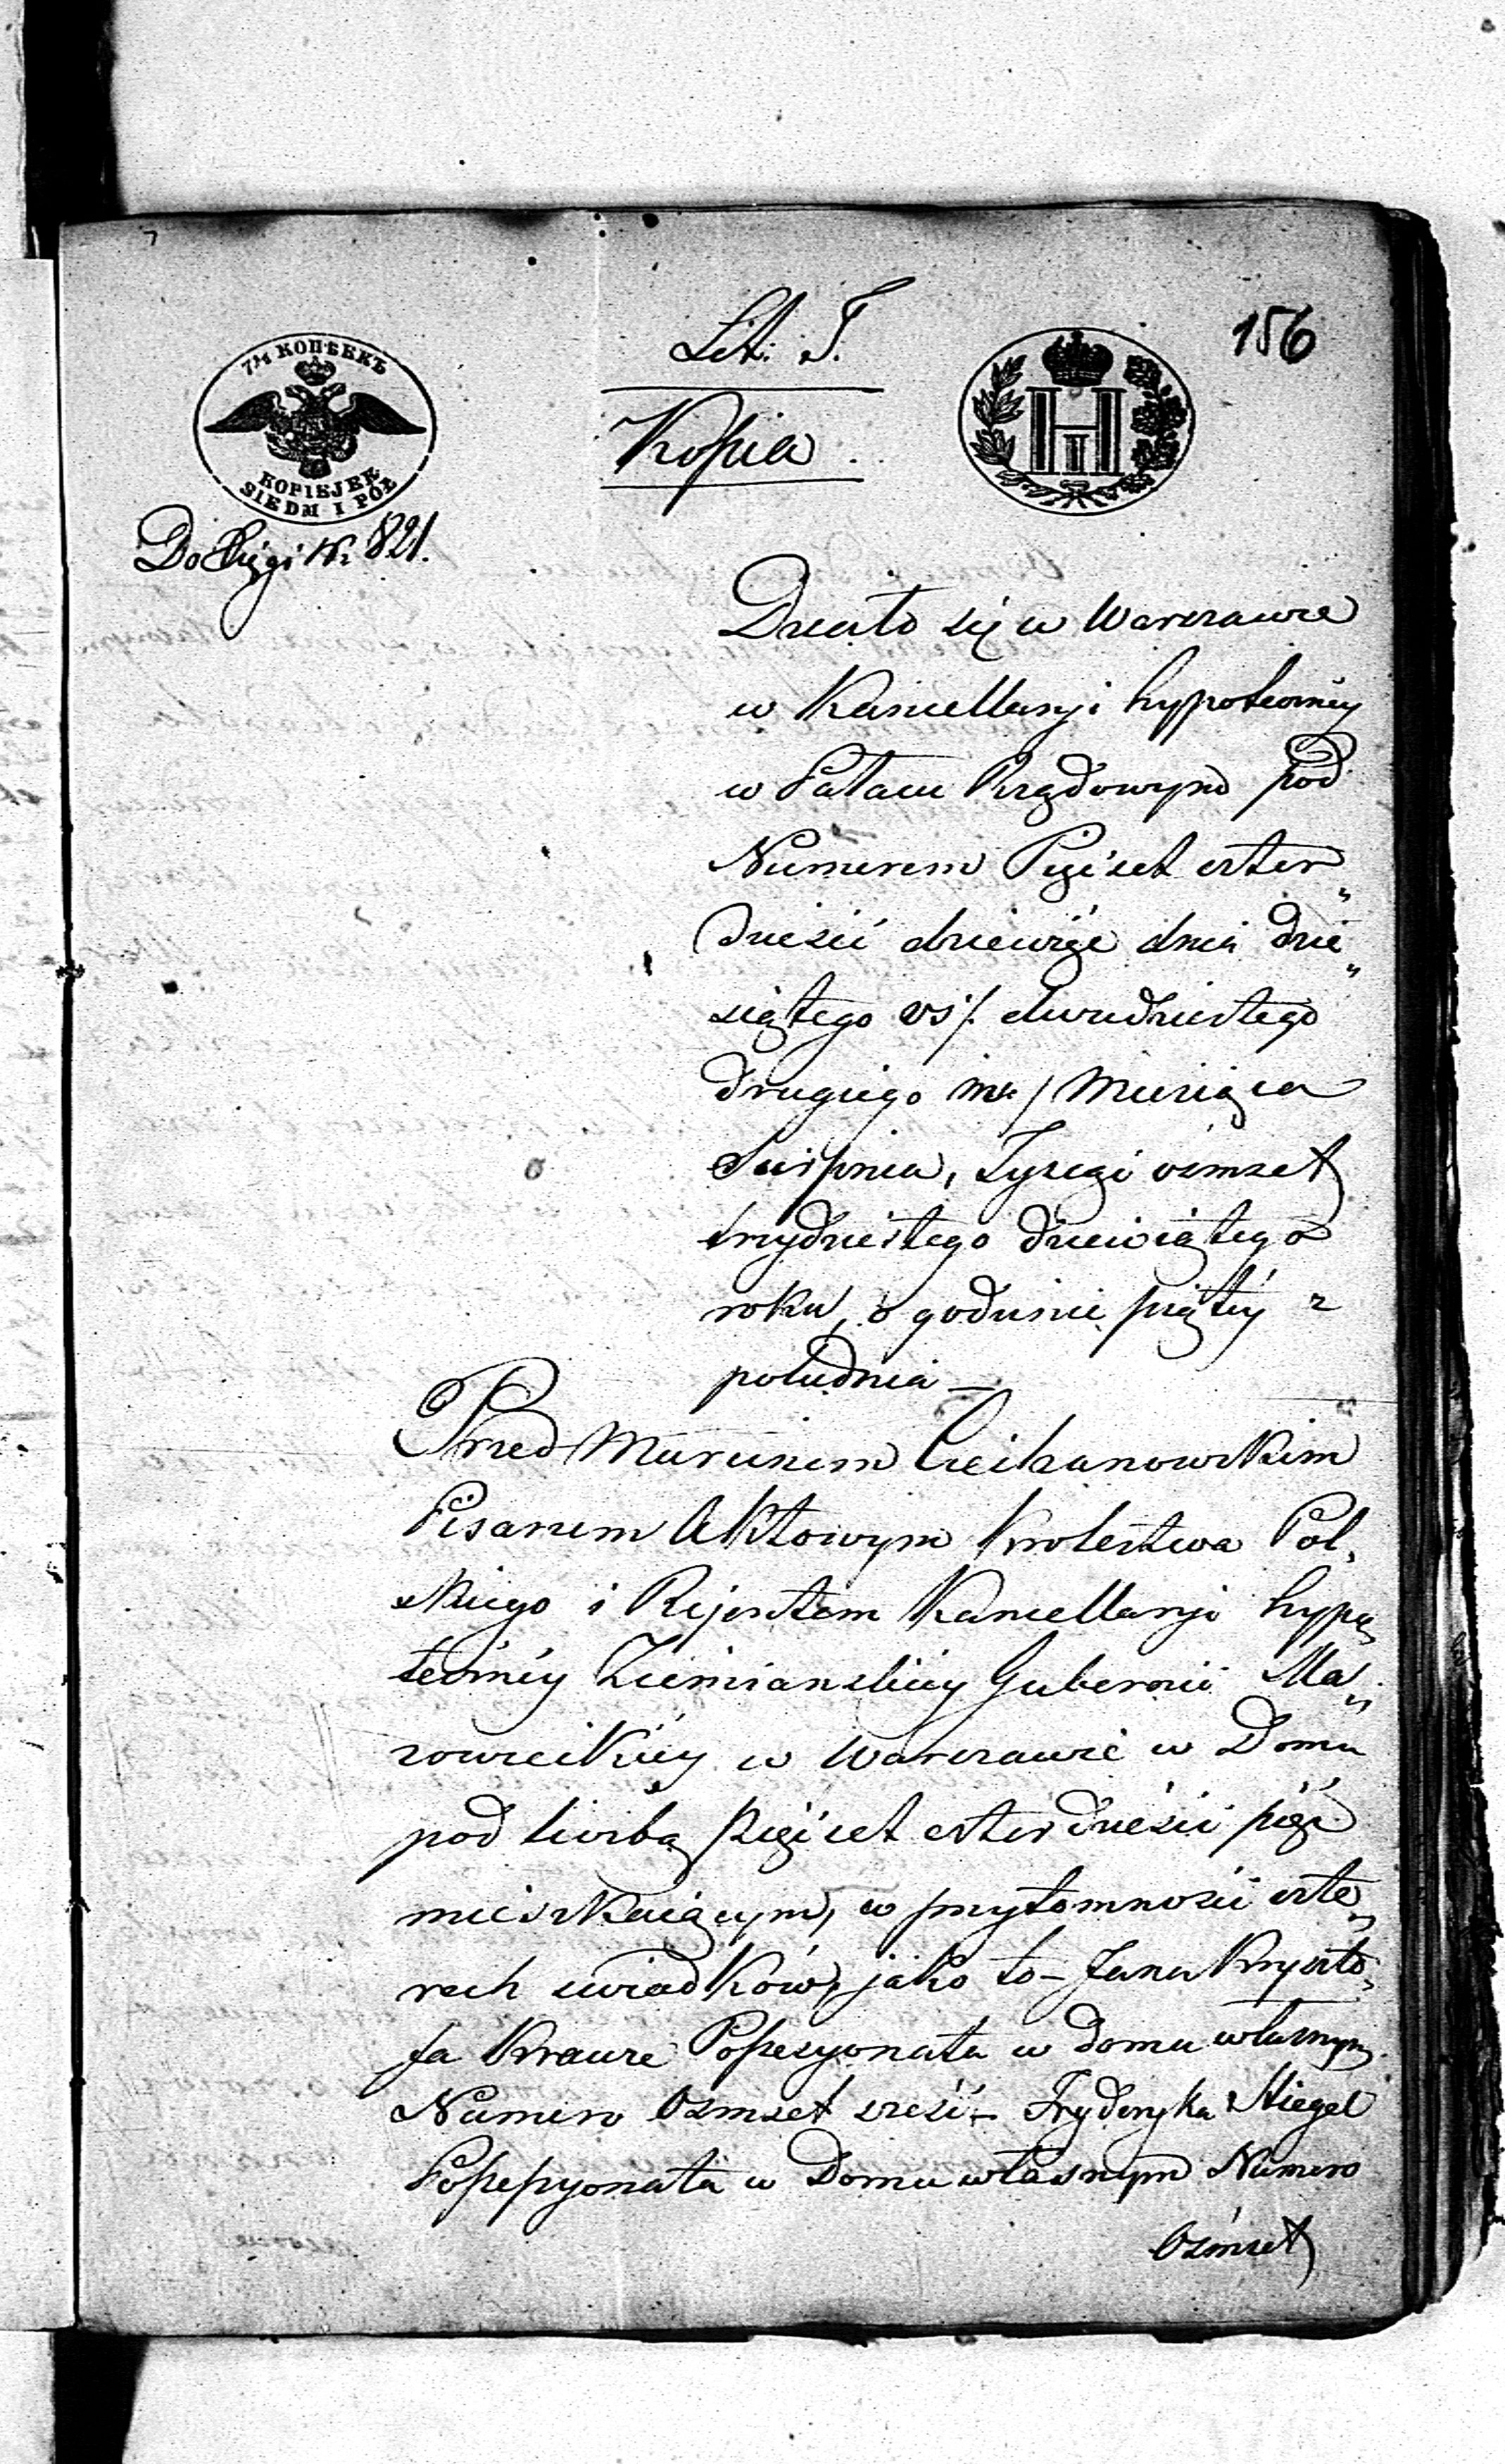 156
Lit: T.
7½ КОПѢЕКЪ
KOPIEJEK
SIEDM I PÓŁ
Н I
Kopia.
Do Księgi Nr 821.
Działo się w Warszawie
w Kancellaryi hypoteczney
w Pałacu Rządowym pod
Numerem Pięćset czter„
dzieści dziewięć dnia dzie„
siątego vs/. dwudziestego
drugiego ns/ Miesiąca
Sierpnia, Tysiąc ośmset
trzydziestego dziewiątego
roku, o godzinie piątéy z
południa —
Przed Marcinem Ciechanowskim
Pisarzem Aktowym Królestwa Pol„
skiego i Rejentem Kancellaryi hypo„
teczney Ziemianskiey Gubernii Ma„
zowieckiey w Warszawie w Domu
pod liczbą Pięćset czterdzieści pięć
mieszkaiącym, w przytomności czte„
rech świadków, jako to – Jana Kryszto„
fa Krauze Possesyonata w domu własnym
Numero Ośmset sześć – Fryderyka Stiegel
Possessyonata w Domu własnym Numero
Ośmset